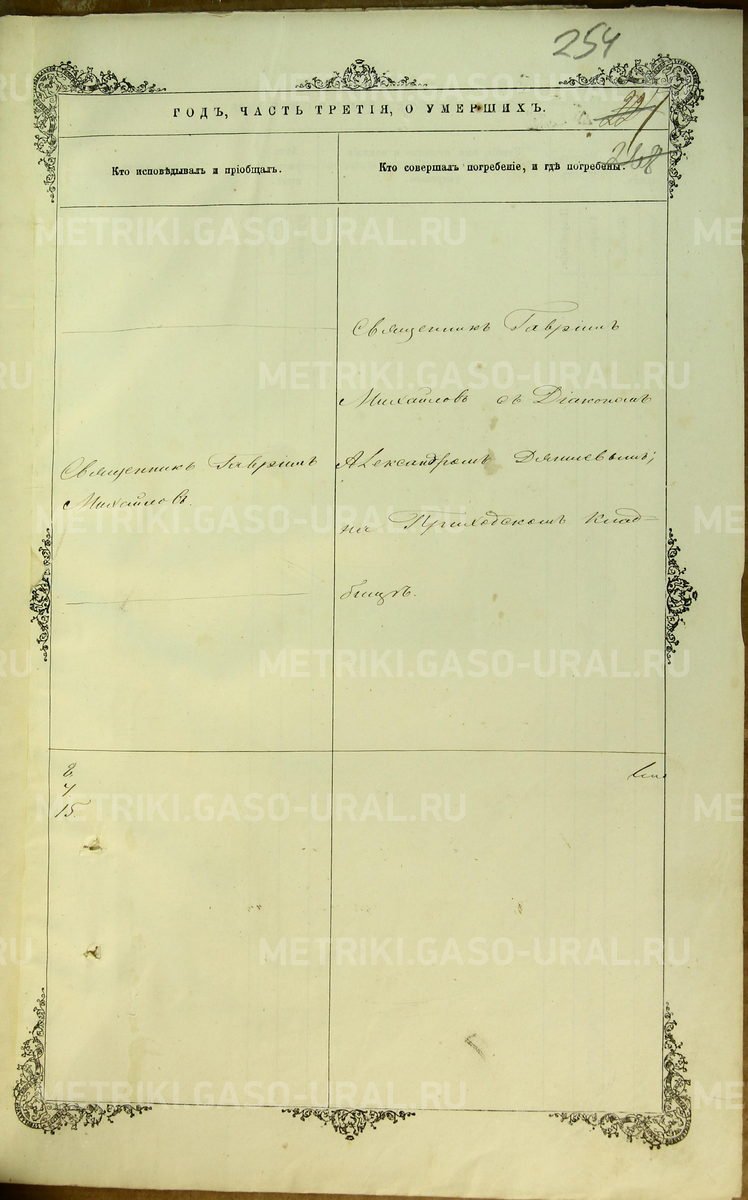 254
ГОДЪ, ЧАСТЬ ТРЕТІЯ, О УМЕРШИХЪ.
Кто исповѣдывалъ и пріобщалъ.
Кто совершалъ погребеніе, и гдѣ погребены.
Священникъ Гавріилъ
Михайловъ съ Діакономъ
Священникъ Гавріилъ
Михайловъ.
Александромъ
на Приходскомъ клад-
бищѣ.
8
7
15.
METRIKI.GASO-URAL.RU